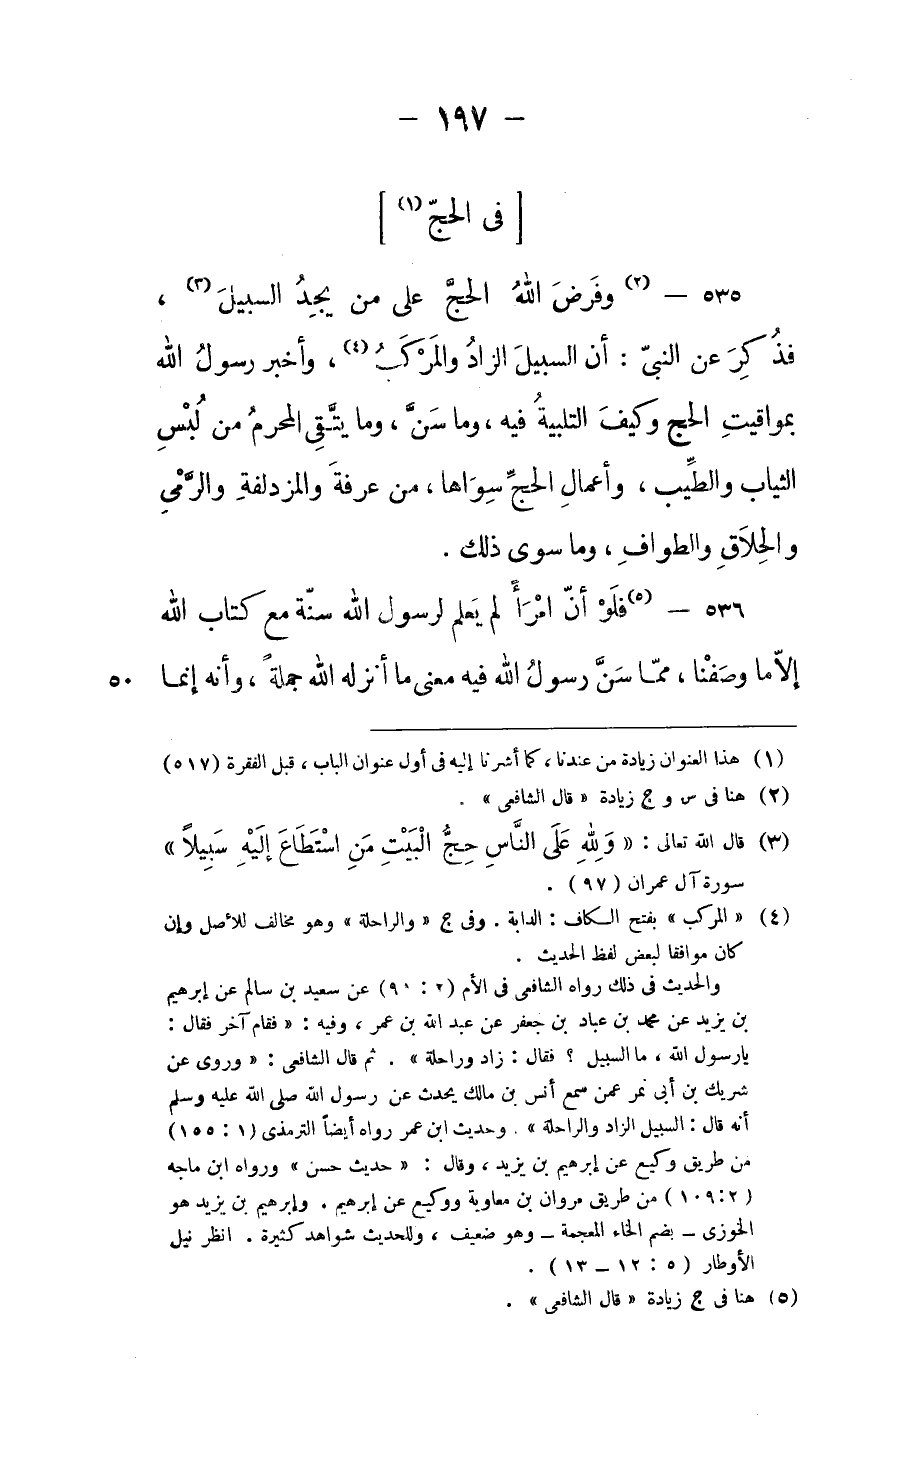 — ١٩٧ —
[ فى الحجّ (١) ]
٥٣٥ — (٢) وفَرَضَ اللهُ الحجَّ على من يجِدُ السبيلَ (٣) ،
فذُكِرَ عن النبىّ : أن السبيلَ الزادُ والمَرْكَبُ (٤) ، وأخبر رسولُ الله
بمواقيتِ الحج وكيفَ التلبيةُ فيه ، وما سَنَّ ، وما يتَّقِى المحرمُ من لُبْسِ
الثياب والطِّيب ، وأعمالِ الحجِّ سِوَاها ، من عرفةَ والمزدلفةِ والرَّمْىِ
والحِلاَقِ والطوافِ ، وما سوى ذلك .
٥٣٦ — (٥) فلَوْ أنّ امْرَأً لم يَعلم لرسول الله سنّة مع كتاب الله
إلاّ ما وصَفْنا ، ممّا سَنَّ رسولُ الله فيه معنى ما أنزله الله جملةً ، وأنه إنما ٥٠
(١) هذا العنوان زيادة من عندنا ، كما أشرنا إليه فى أول عنوان الباب ، قبل الفقرة (٥١٧)
(٢) هنا فى س و ج زيادة « قال الشافعى » .
(٣) قال الله تعالى : « وَلِلهِ عَلَى النَّاسِ حِجُّ الْبَيْتِ مَنِ اسْتَطَاعَ إِلَيْهِ سَبِيلاً »
سورة آل عمران ( ٩٧ ) .
(٤) « المركب » بفتح الكاف : الدابة . وفى ج « والراحلة » وهو مخالف للأصل وإن
كان موافقا لبعض لفظ الحديث .
والحديث فى ذلك رواه الشافعى فى الأم (٢ : ٩٠) عن سعيد بن سالم عن إبرهيم
بن يزيد عن محمد بن عباد بن جعفر عن عبد الله بن عمر ، وفيه : « فقام آخر فقال :
يارسول الله ، ما السبيل ؟ فقال : زاد وراحلة » . ثم قال الشافعى : « وروى عن
شريك بن أبى نمر عمن سمع أنس بن مالك يحدث عن رسول الله صلى الله عليه وسلم
أنه قال : السبيل الزاد والراحلة » . وحديث ابن عمر رواه أيضاً الترمذى (١ : ١٥٥)
من طريق وكيع عن إبرهيم بن يزيد ، وقال : « حديث حسن » ورواه ابن ماجه
(٢ : ١٠٩) من طريق مروان بن معاوية ووكيع عن إبرهيم . وإبرهيم بن يزيد هو
الخوزى – بضم الخاء المعجمة – وهو ضعيف ، وللحديث شواهد كثيرة . انظر نيل
الأوطار (٥ : ١٢ – ١٣) .
(٥) هنا فى ج زيادة « قال الشافعى » .